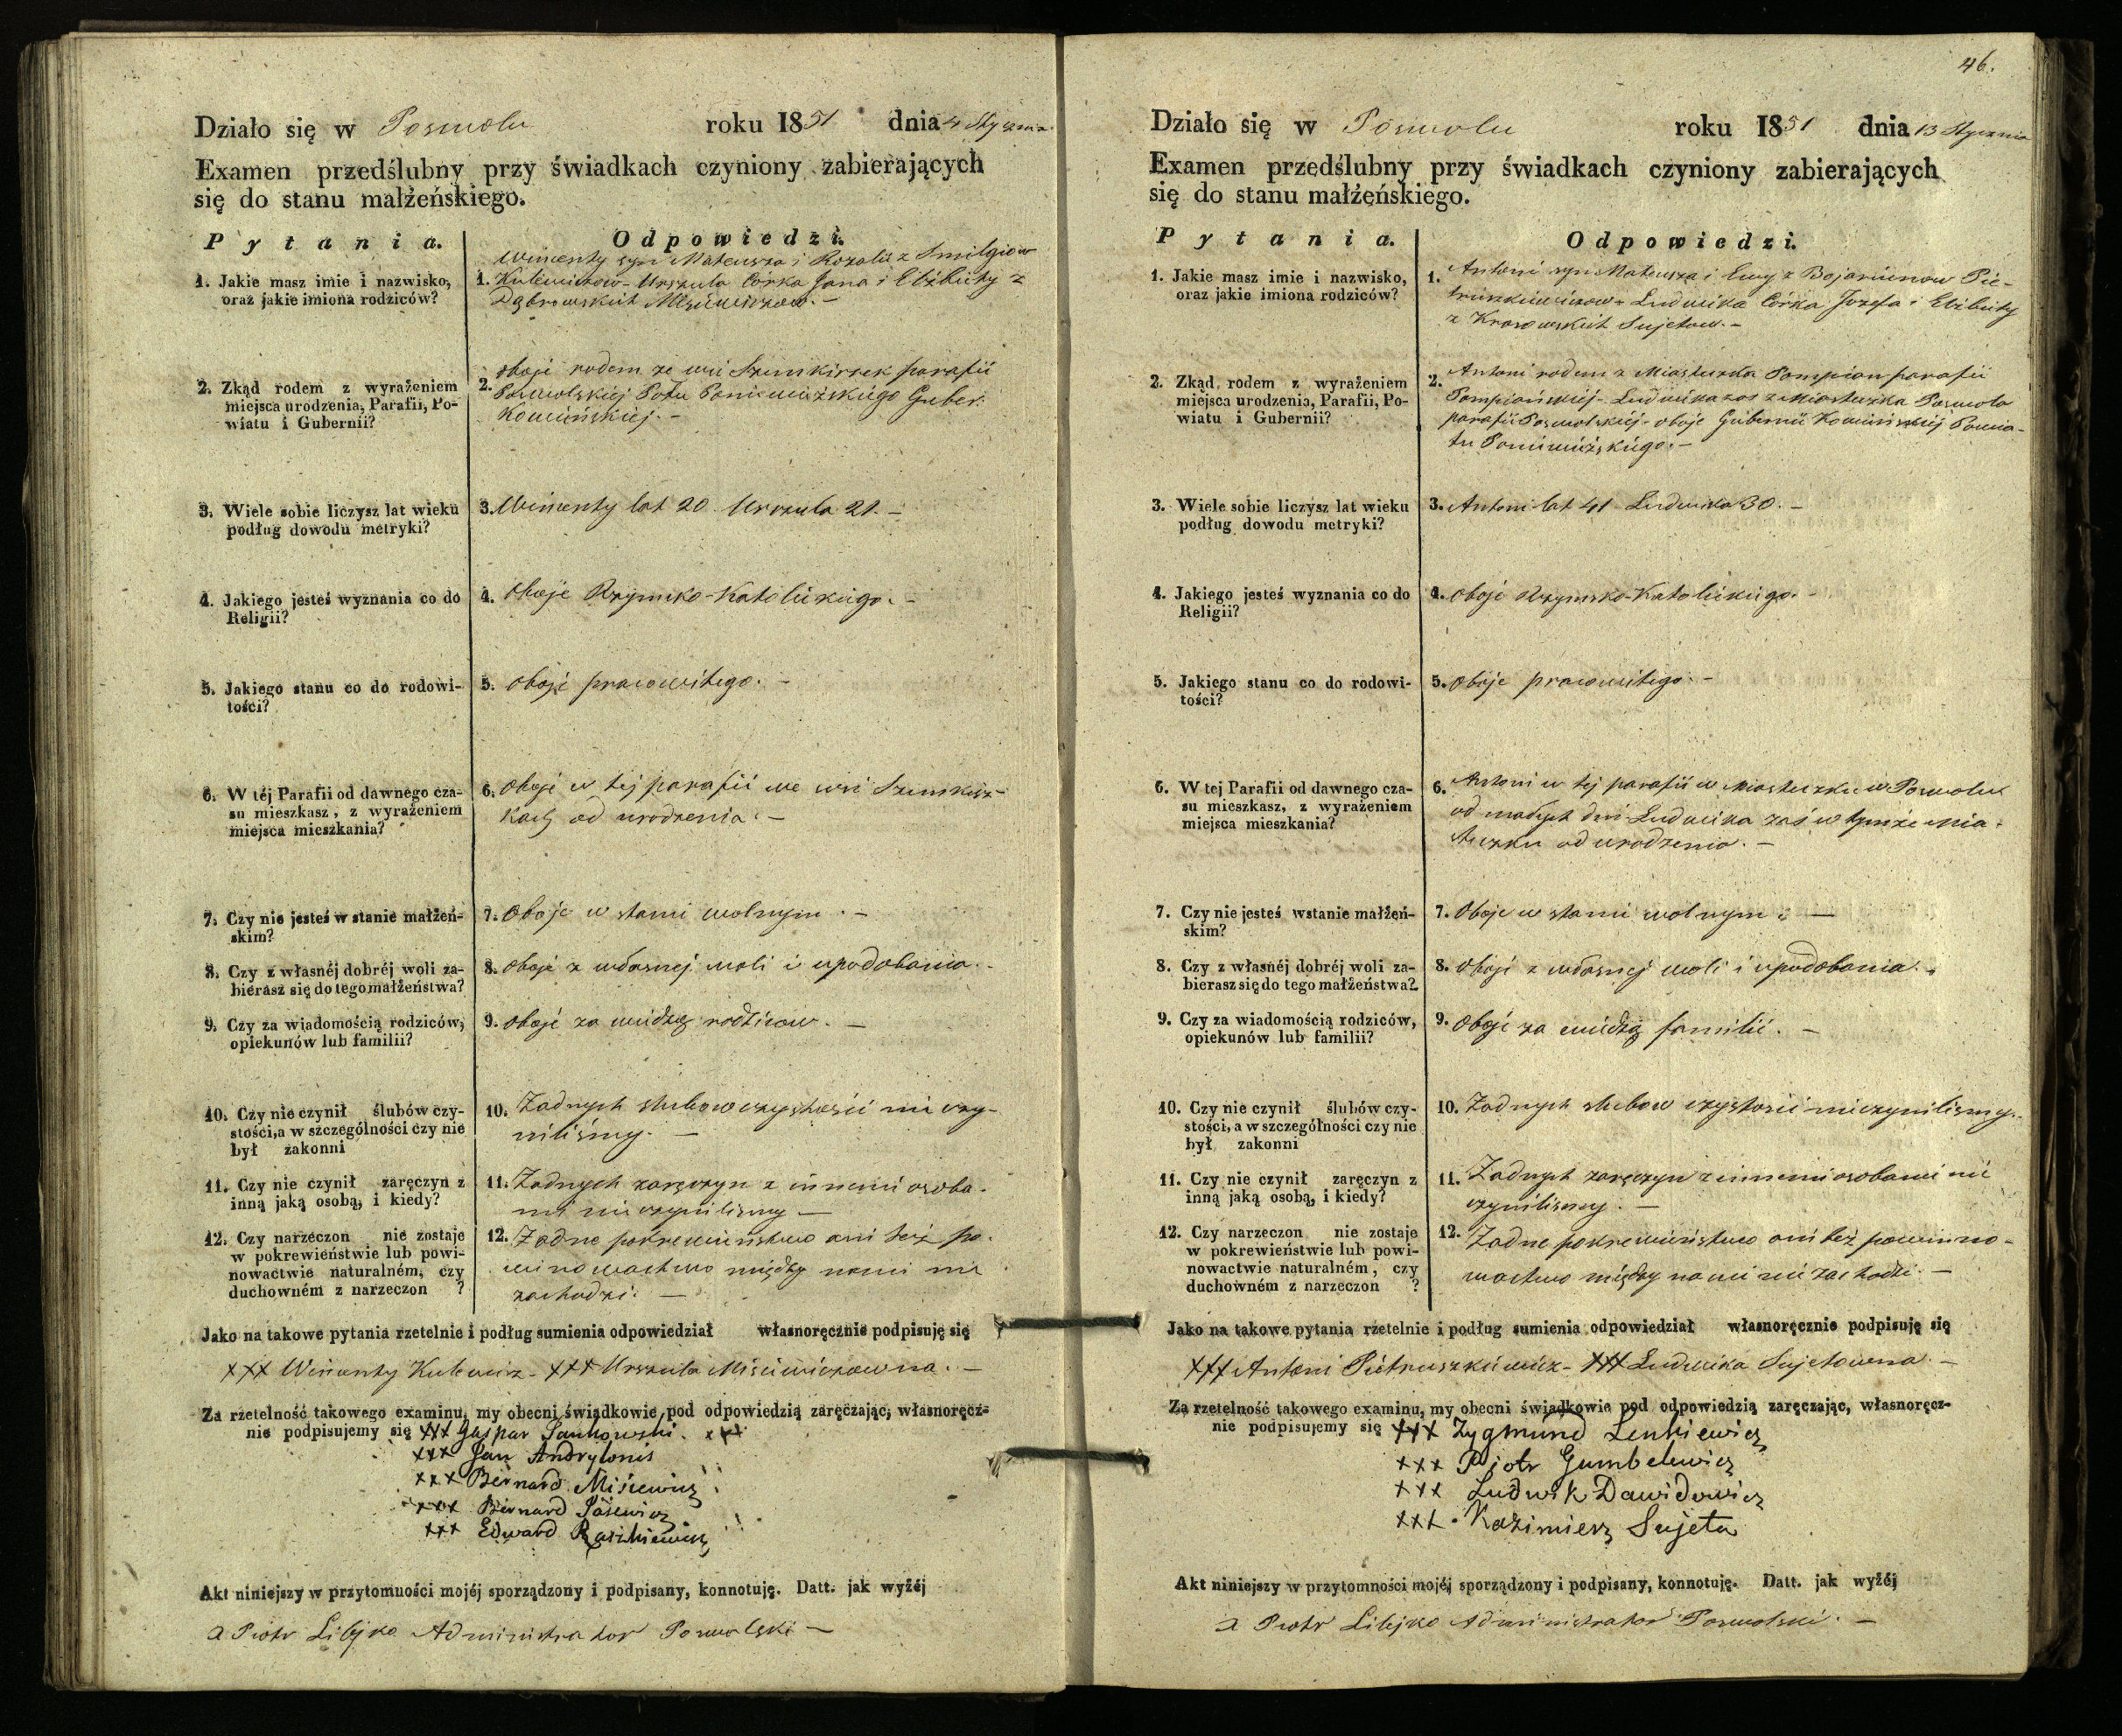 Działo się w Poswolu roku 1851 dnia 4 Stycznia
Examen przedślubny przy świadkach czyniony zabierających
się do stanu małżeńskiego.
Pytania. Odpowiedzi.
1. Jakie masz imie i nazwisko,
oraz jakie imiona rodziców?
Wincenty syn Mateusza i Rozalii z Smilgiow
1. Kulewiczow - Urszula Córka Jana i Elżbiety z
Dąbrowskich Misiewiczow. -
2. Zkąd rodem z wyrażeniem
miejsca urodzenia, Parafii, Po-
wiatu i Gubernii?
oboje rodem ze wsi parafii
2. Poswolskiej Pottu Poniewiezskiego Guber.
Kowieńskiej. -
3. Wiele sobie liczysz lat wieku
podług dowodu metryki?
3. Wincenty lat 20 Urszula 21. -
4. Jakiego jesteś wyznania co do
Religii?
4. Oboje Rzymsko-Katolickiego. -
5. Jakiego stanu co do rodowi-
tości?
5. oboje prawowitego. -
6. W téj Parafii od dawnego cza-
su mieszkasz, z wyrażeniem
miejsca mieszkania?
6. Oboje w tej parafii we wsi
od urodzenia. -
7. Czy nie jesteś w stanie małżeń-
skim?
7. Oboje w stanie wolnym. -
8. Czy z własnéj dobréj woli za-
bierasz się do tego małżeństwa?
8. Oboje z własnej woli i upodobania. -
9. Czy za wiadomością rodziców,
opiekunów lub familii?
9. oboje za wiedzą rodzicow. -
10. Czy nie czynił ślubów czy-
stości, a w szczególności czy nie
był zakonni
10. Żadnych slubow czystości nie czy-
niliśmy. -
11. Czy nie czynił zaręczyn z
inną jaką osobą, i kiedy?
11. Żadnych zaręczyn z innemi osoba-
mi nie czynilismy -
12. Czy narzeczon nie zostaje
w pokrewieństwie lub powi-
nowactwie naturalném, czy
duchowném z narzeczon ?
12. Żadne pokrewieństwo ani też po-
winowactwo między nami nie
zachodzi. -
Jako na takowe pytania rzetelnie i podług sumienia odpowiedział własnoręcznie podpisuję się
xxx Wincenty Kulewicz - xxx Urszula Misiewiczowna. -
Za rzetelność takowego examinu, my obecni świadkowie pod odpowiedzią zaręczając, własnoręcz-
nie podpisujemy się xxx Gaspar Jankowski. xxx
xxx Jan Andrylonis
xxx Bernard Misiewicz
xxx Bernard
xxx Edward
Akt niniejszy w przytomności mojéj sporządzony i podpisany, konnotuję. Datt. jak wyżéj
X Piotr Libejko Administrator Poswolski -
46.
Działo się w Poswolu roku 1851 dnia 13 Stycznia
Examen przedślubny przy świadkach czyniony zabierających
się do stanu małżeńskiego.
Pytania. Odpowiedzi.
1. Jakie masz imie i nazwisko,
oraz jakie imiona rodziców?
1. Antoni syn Mateusza i Ewy z Bojarunow Pie-
truszkiewiczow - Ludwika Córka Jozefa i Elżbiety
z Krasowskich Sujetow. -
2. Zkąd rodem z wyrażeniem
miejsca urodzenia, Parafii, Po-
wiatu i Gubernii?
2. Antoni rodem z Miasteczka Pompian parafii
Pompiańskiej - Ludwika zas z Miasteczka Poswola
parafii Poswolskiej - oboje Gubernii Kowieńskiej Powia-
tu Poniewiezskiego. -
3. Wiele sobie liczysz lat wieku
podług dowodu metryki?
3. Antoni lat 41 Ludwika 30. -
4. Jakiego jesteś wyznania co do
Religii?
4. oboje Rzymsko-Katolickiego. -
5. Jakiego stanu co do rodowi-
tości?
5. Oboje prawowitego. -
6. W tej Parafii od dawnego cza-
su mieszkasz, z wyrażeniem
miejsca mieszkania?
6. Antoni w tej parafii w Miasteczku w Poswolu
od małych dni Ludwika zaś w tymże Mia-
steczku od urodzenia. -
7. Czy nie jesteś wstanie małżeń-
skim?
7. Oboje w stanie wolnym. -
8. Czy z własnéj dobréj woli za-
bierasz się do tego małżeństwa?
8. Oboje z własnej woli i upodobania. -
9. Czy za wiadomością rodziców,
opiekunów lub familii?
9. Oboje za wiedzą familii. -
10. Czy nie czynił ślubów czy-
stości, a w szczególności czy nie
był zakonni
10. Żadnych slubow czystosci nieczynilismy. -
11. Czy nie czynił zaręczyn z
inną jaką osobą, i kiedy?
11. Żadnych zaręczyn z innemi osobami nie
czynilismy. -
12. Czy narzeczon nie zostaje
w pokrewieństwie lub powi-
nowactwie naturalném, czy
duchowném z narzeczon ?
12. Żadne pokrewieństwo ani też powinno-
wactwo między nami nie zachodzi. -
Jako na takowe pytania rzetelnie i podług sumienia odpowiedział własnoręcznie podpisuję się
xxx Antoni Pietruszkiewicz - xxx Ludwika Sujetowna. -
Za rzetelność takowego examinu, my obecni świadkowie pod odpowiedzią zaręczając, własnoręcz-
nie podpisujemy się xxx Zygmund Lenkiewicz
xxx Pjotr Gumbelewicz
xxx Ludwik Dawidowicz
xxx Kazimierz Sujeta
Akt niniejszy w przytomności mojéj sporządzony i podpisany, konnotuję. Datt. jak wyżéj
X Piotr Libejko Administrator Poswolski. -